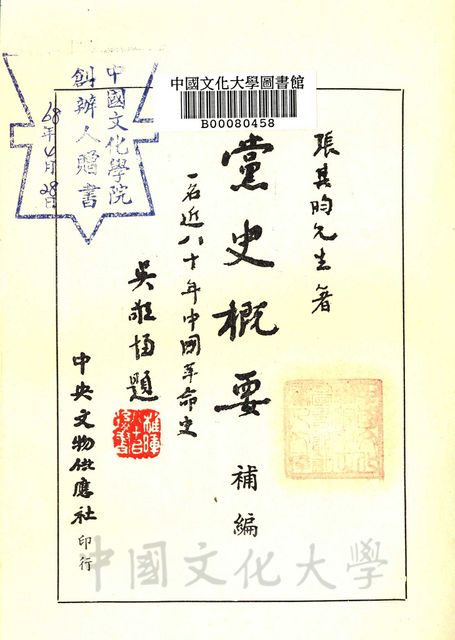 中國文化大學圖書館
B00080458
中國文化學院
創辦人贈書
68年4月28日
張其昀先生著
黨史概要 補編
一名近八十年中國革命史
吳敬恆題
中央文物供應社 印行
中國文化大學